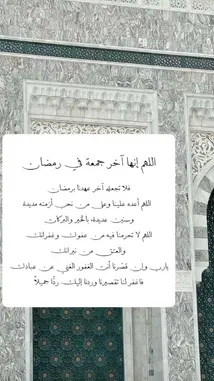 اللهم إنها آخر جمعة في رمضان
فلا تجعله آخر عهدنا برمضان
اللهم أعده علينا وعلى من نحب أزمنة مديدة
وسنين عديدة، بالخير والبركات
اللهم لا تحرمنا فيه من عفوك وغفرانك
والعتق من نيرانك
يارب وإن قصّرنا أنت الغفور الغني عن عبادك
فاغفر لنا تقصيرنا وردنا إليك ردًا جميلًا